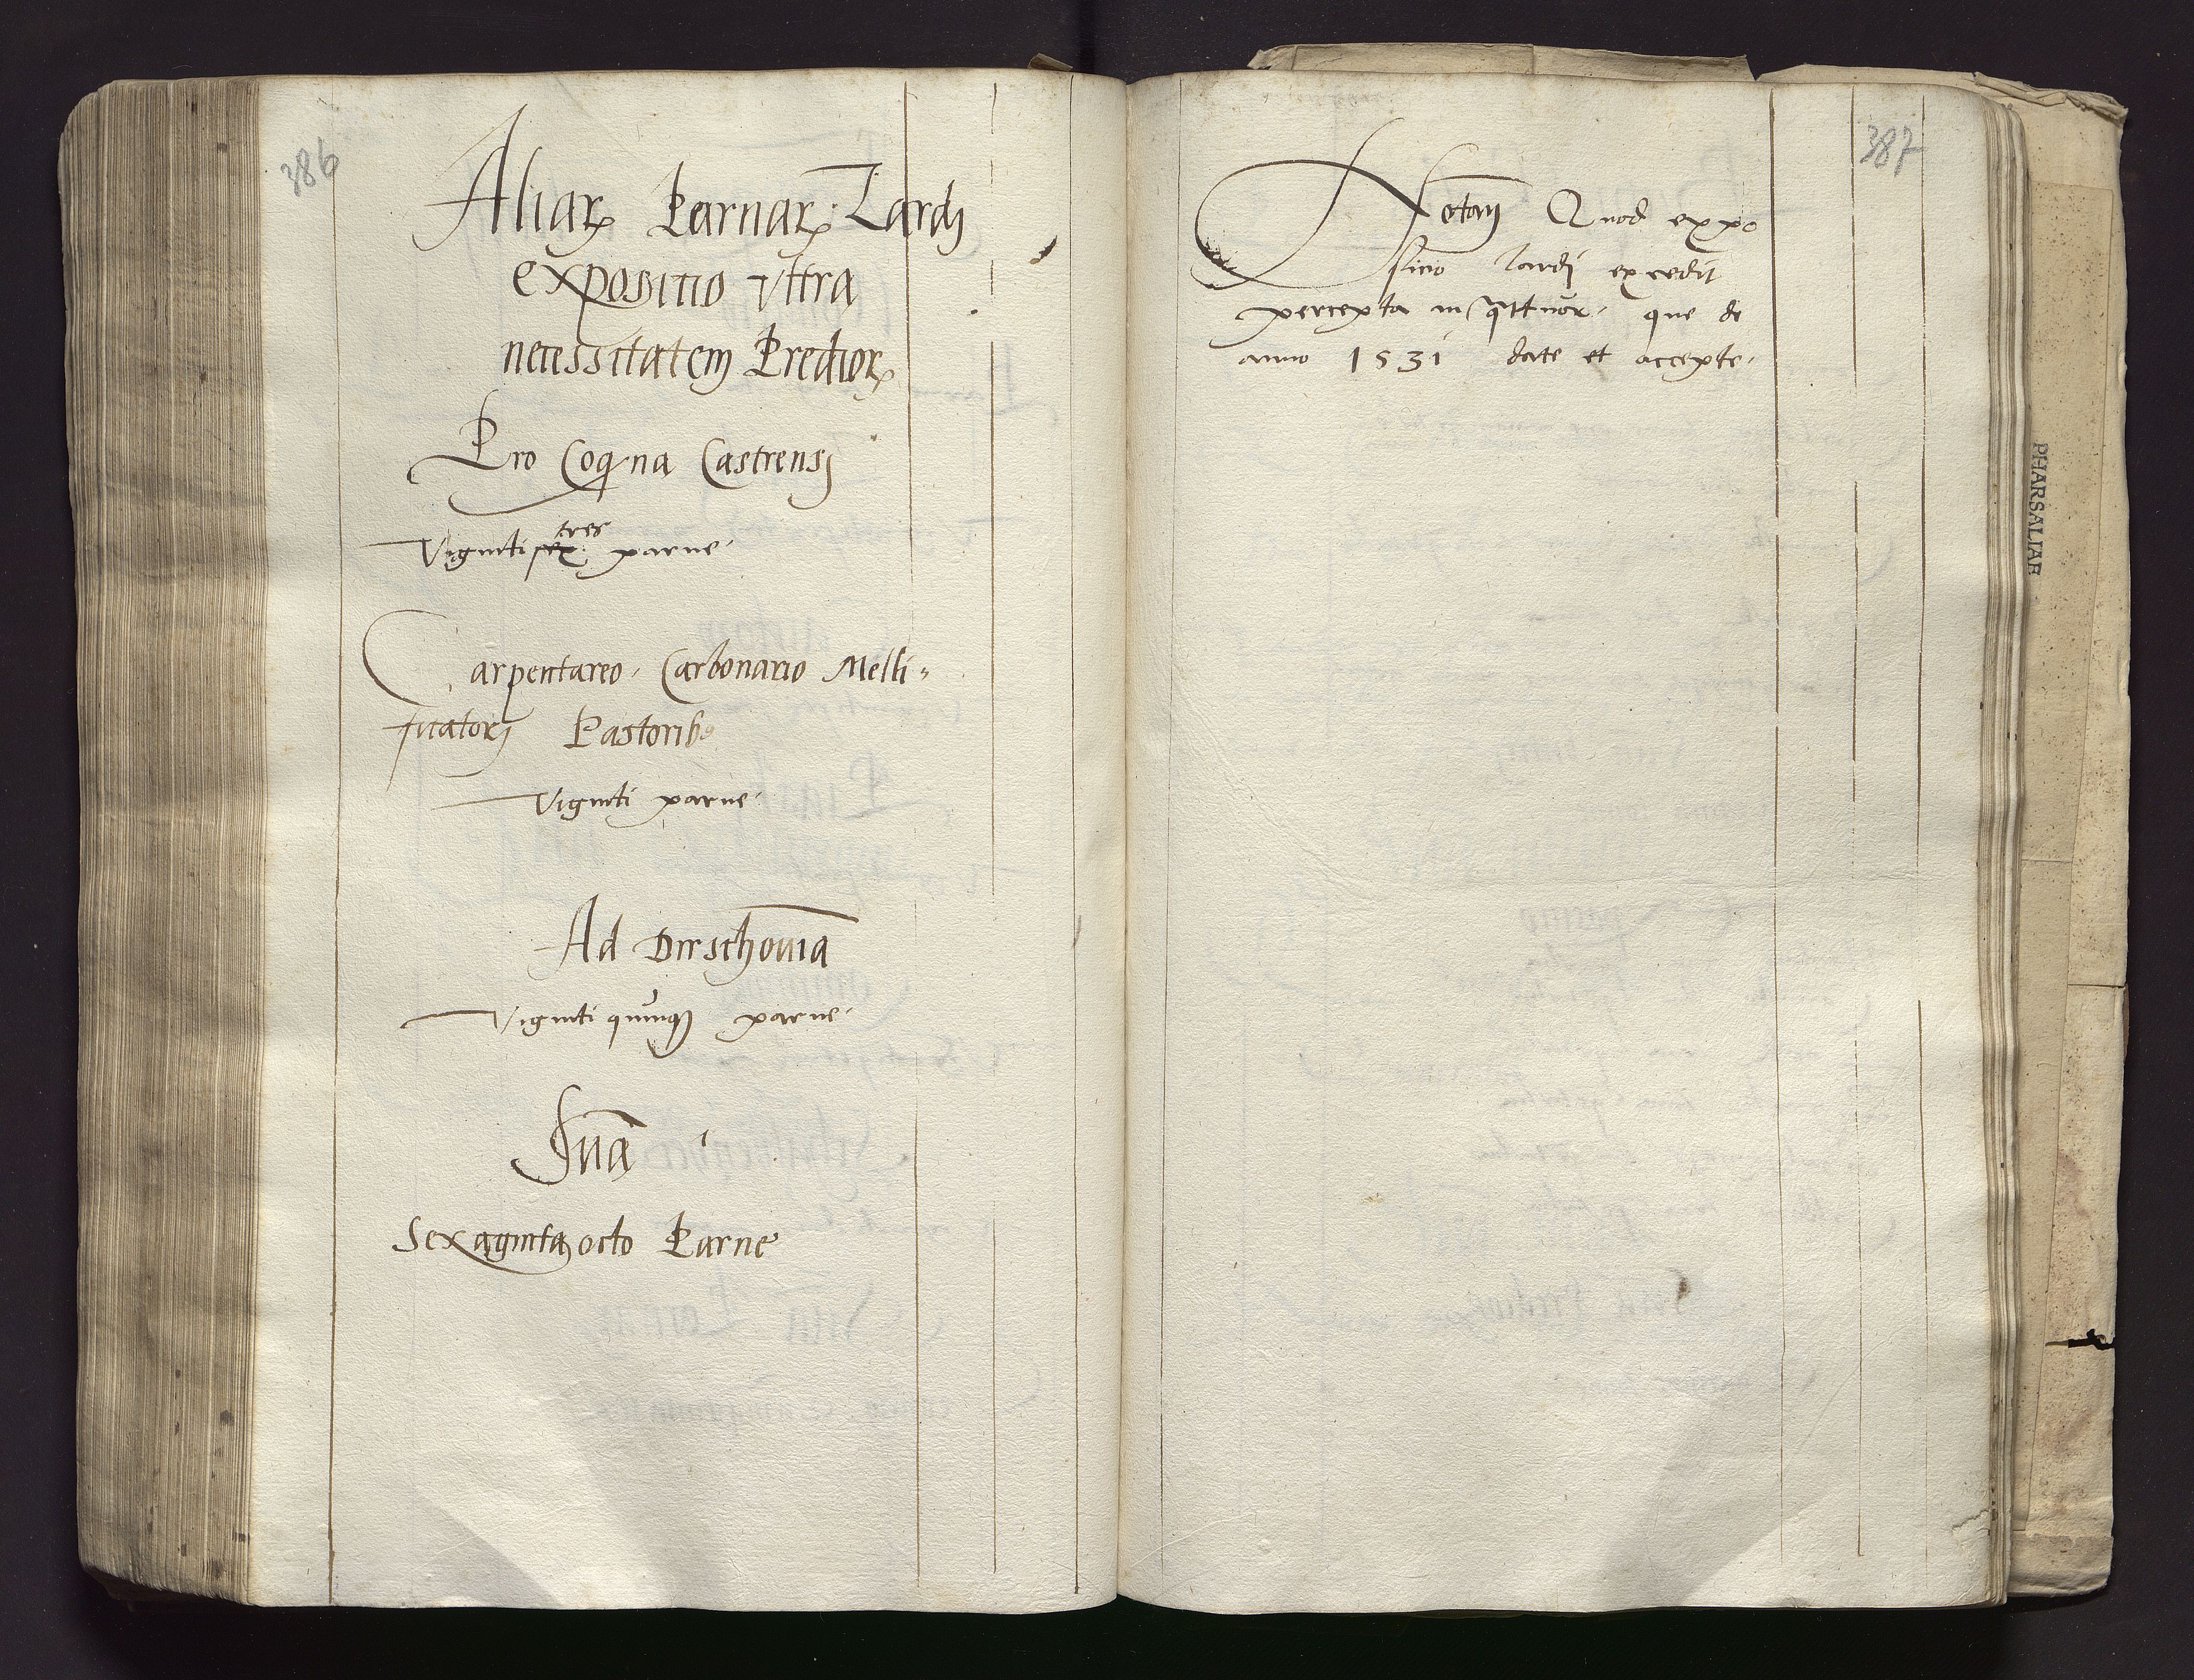 386
Aliarꝝ Parnarꝝ Lardj
expositio vltra
necessitatem Prediorꝝ
Pro Coqͥna Castrensj
tres
Viginti sex parne
Carpentareo Carbonario Melli-
ficatorj Pastoribꝰ
Viginti parne
Ad Dirschouiā
Viginti quinqꝫ parne
Suā
Sexaginta octo Parne
387
Notan Quod expo
sicio lardj excedit
percepta in qͣttuor que de
anno 1531 date et accepte
PHARSALIAE